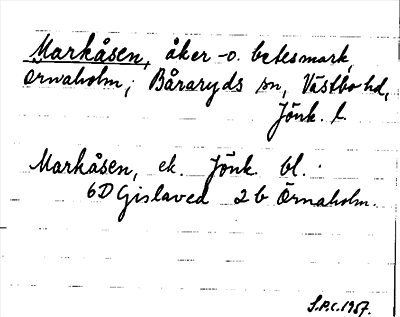 Markåsen, åker- o. betesmark,
Örnaholm, Båraryds sn, Västbo hd,
Jönk. l.
Markåsen, ek. Jönk. bl.
6D Gislaved 2b Örnaholm.
S.P.C. 1957.